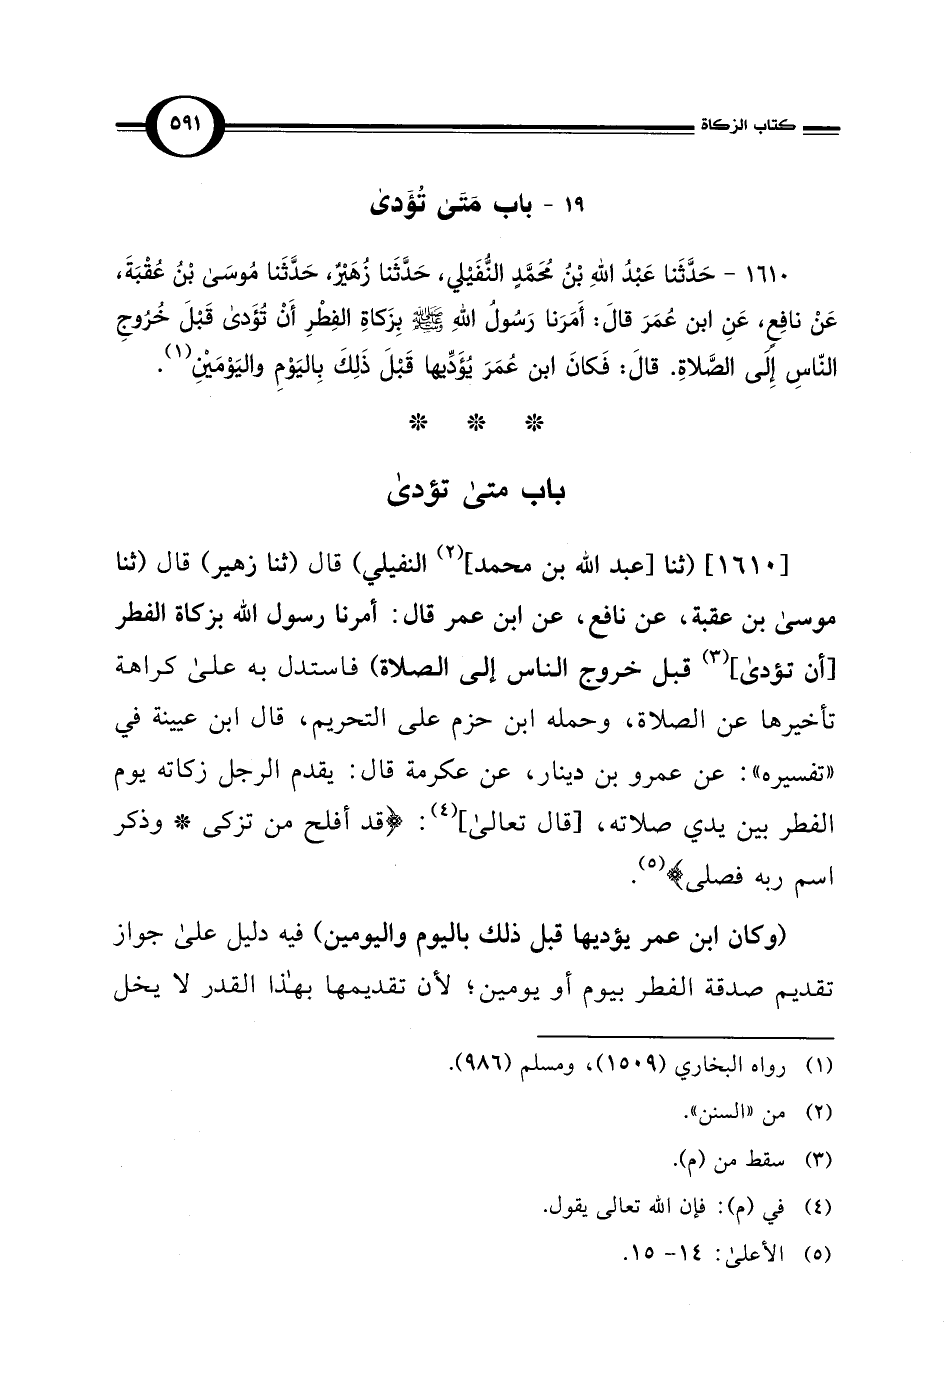 كتاب الزكاة
٥٩١
١٩ - باب مَتَىٰ تُؤَدىٰ
١٦١٠ - حَدَّثَنا عَبْدُ اللهِ بْنُ مُحَمَّدٍ النُّفَيْلِي، حَدَّثَنا زُهَيْرٌ، حَدَّثَنا مُوسَىٰ بْنُ عُقْبَةَ،
عَنْ نافِعٍ، عَنِ ابن عُمَرَ قالَ: أَمَرَنا رَسُولُ اللهِ ﷺ بِزَكاةِ الفِطْرِ أَنْ تُؤَدىٰ قَبْلَ خُرُوجِ
النّاسِ إِلَى الصَّلاةِ. قالَ: فَكانَ ابن عُمَرَ يُؤَدِّيها قَبْلَ ذَلِكَ بِاليَوْمِ واليَوْمَيْنِ(١).
* * *
باب متىٰ تؤدىٰ
[١٦١٠] (ثنا [عبد الله بن محمد](٢) النفيلي) قال (ثنا زهير) قال (ثنا
موسىٰ بن عقبة، عن نافع، عن ابن عمر قال: أمرنا رسول الله بزكاة الفطر
[أن تؤدىٰ](٣) قبل خروج الناس إلى الصلاة) فاستدل به علىٰ كراهة
تأخيرها عن الصلاة، وحمله ابن حزم على التحريم، قال ابن عيينة في
«تفسيره»: عن عمرو بن دينار، عن عكرمة قال: يقدم الرجل زكاته يوم
الفطر بين يدي صلاته، [قال تعالىٰ](٤): ﴿قد أفلح من تزكى * وذكر
اسم ربه فصلى﴾(٥).
(وكان ابن عمر يؤديها قبل ذلك باليوم واليومين) فيه دليل علىٰ جواز
تقديم صدقة الفطر بيوم أو يومين؛ لأن تقديمها بهٰذا القدر لا يخل
(١) رواه البخاري (١٥٠٩)، ومسلم (٩٨٦).
(٢) من «السنن».
(٣) سقط من (م).
(٤) في (م): فإن الله تعالى يقول.
(٥) الأعلىٰ: ١٤- ١٥.